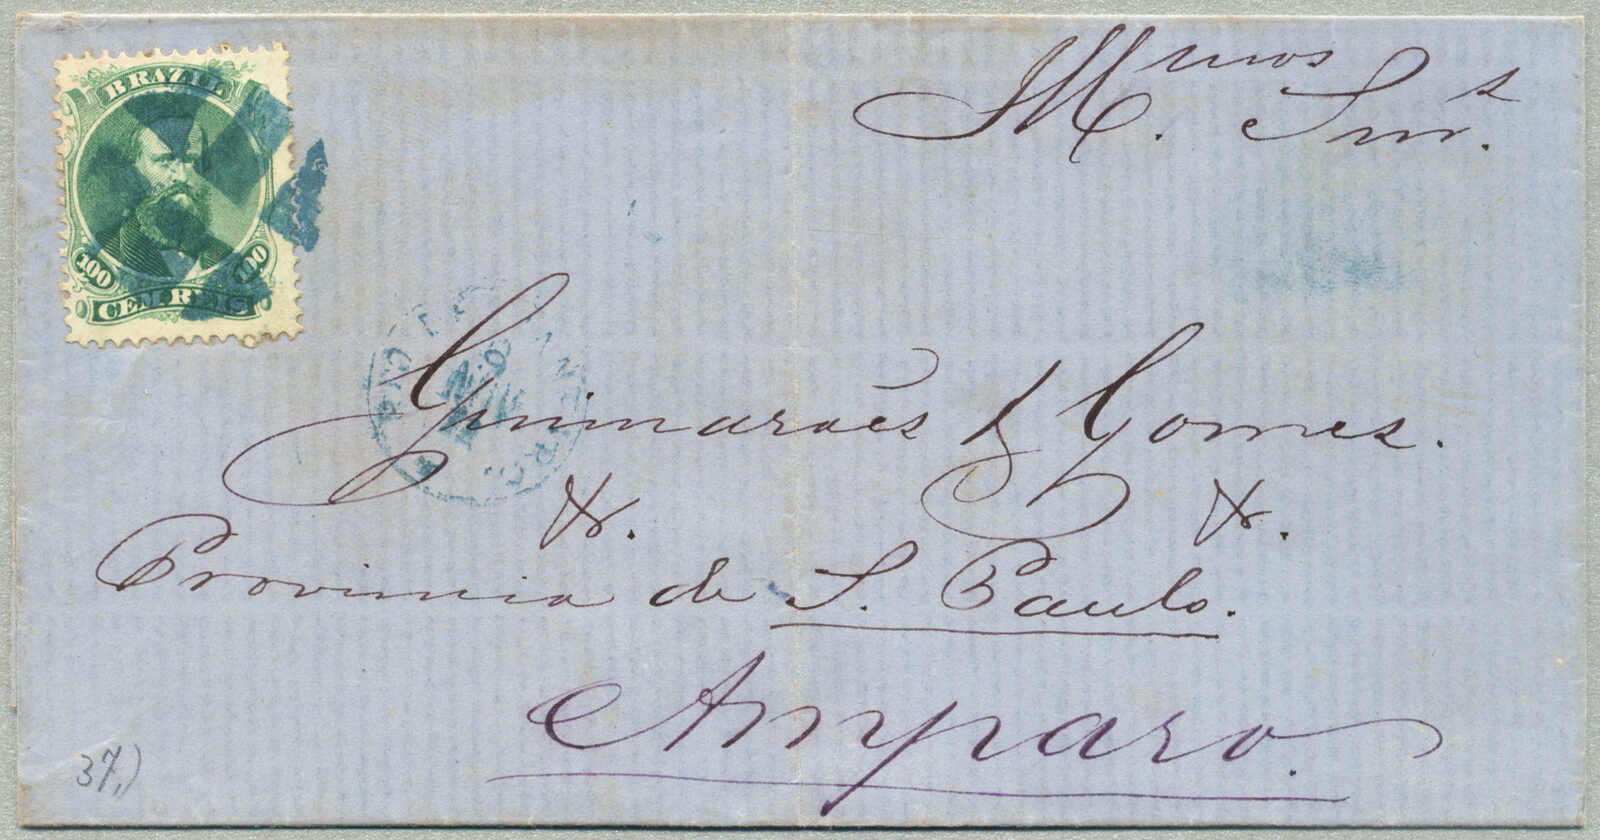 BRAZIL
100 100
CEM REIS
M.mos Snrs.
Guimaraẽs & Gomes.
&. &.
Provincia de S. Paulo.
Amparo.
37,)